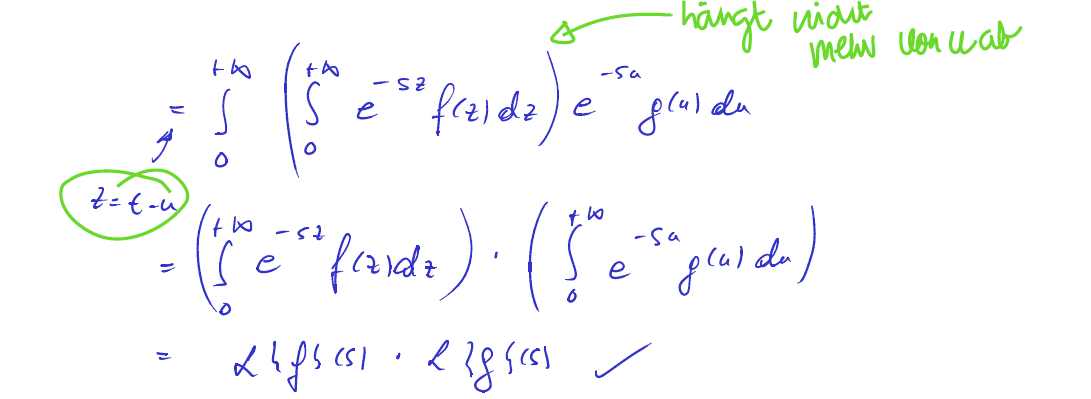 hängt nicht
mehr von u ab
= ∫₀^{+∞} ( ∫₀^{+∞} e^{-sz} f(z) dz ) e^{-su} g(u) du
z = t-u
= ( ∫₀^{+∞} e^{-sz} f(z) dz ) · ( ∫₀^{+∞} e^{-su} g(u) du )
= ℒ{f}(s) · ℒ{g}(s) ✓